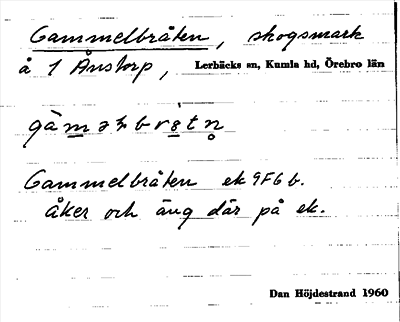 Gammelbråten, skogsmark
å 1 Ånstorp, Lerbäcks sn, Kumla hd, Örebro län
Gammelbråten ek 9F6b.
åker och äng där på ek.
Dan Höjdestrand 1960